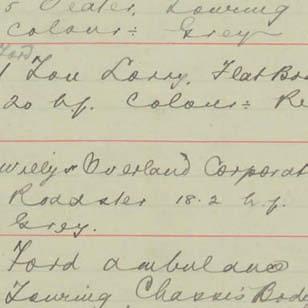 5 Seater, Touring
Colour:- Grey
Ford
1 Ton Lorry, Flat Bod
20 hp. Colour:- Re
Willys Overland Corporat
Roadster 18.2 h.p.
Grey.
Ford ambulance
Touring Chassis Bod